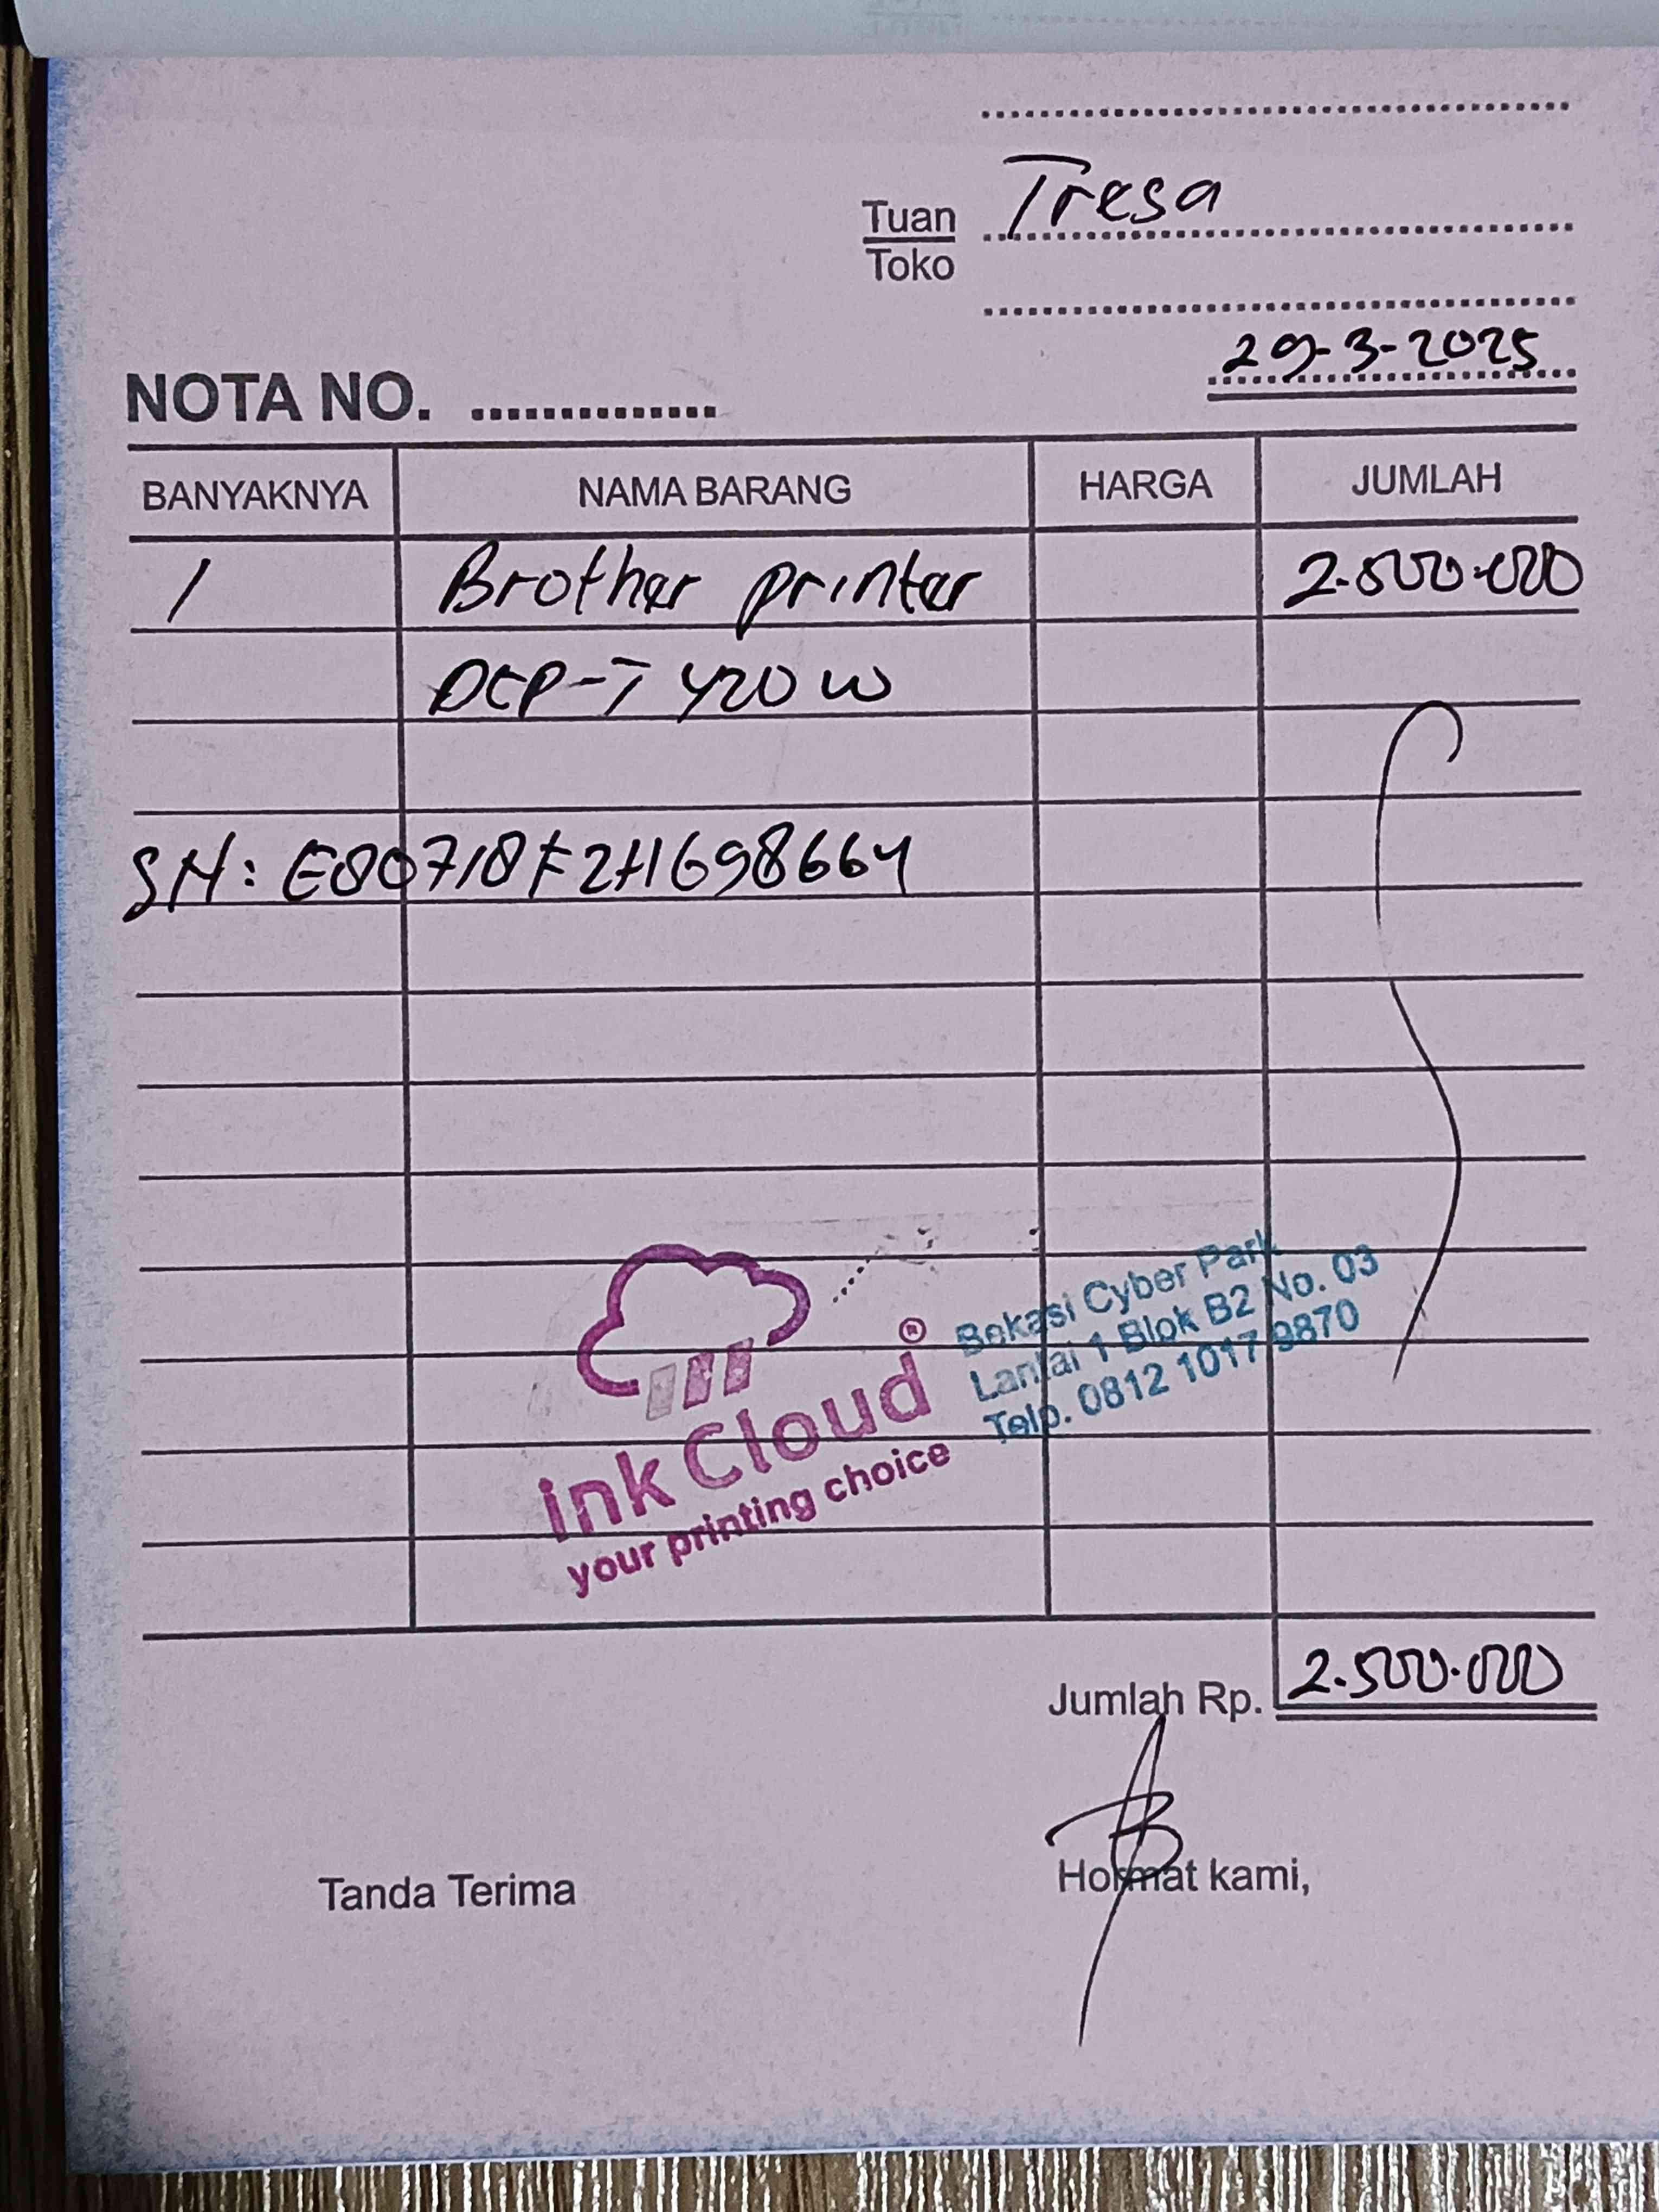 Tresa
Tuan
Toko
29-3-2025
NOTA NO. ..............
BANYAKNYA NAMA BARANG HARGA JUMLAH
1 Brother printer 2.500.000
DCP-T420W
SN: E80718F2H698664
Bekasi Cyber Park
Lantai 1 Blok B2 No. 03
Telp. 0812 1017 9870
ink Cloud ®
your printing choice
Jumlah Rp. 2.500.000
Tanda Terima Hormat kami,